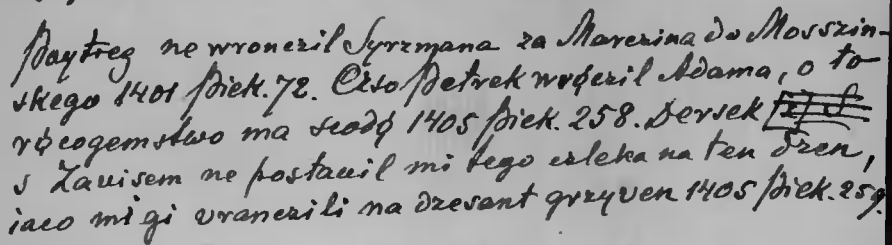 Paytreg ne wronczil Syrzmana za Marczina do Mosszin-
skego 1401 Piek. 72. Czso Petrek wrǫczil Adama, o to
rǫcogemstwo ma scodǫ 1405 Piek. 258. Dersek
s Zauisem ne postauil mi tego czleka na ten dzen,
iaco mi gi vranczili na dzesant grzyven 1405 Piek. 259.